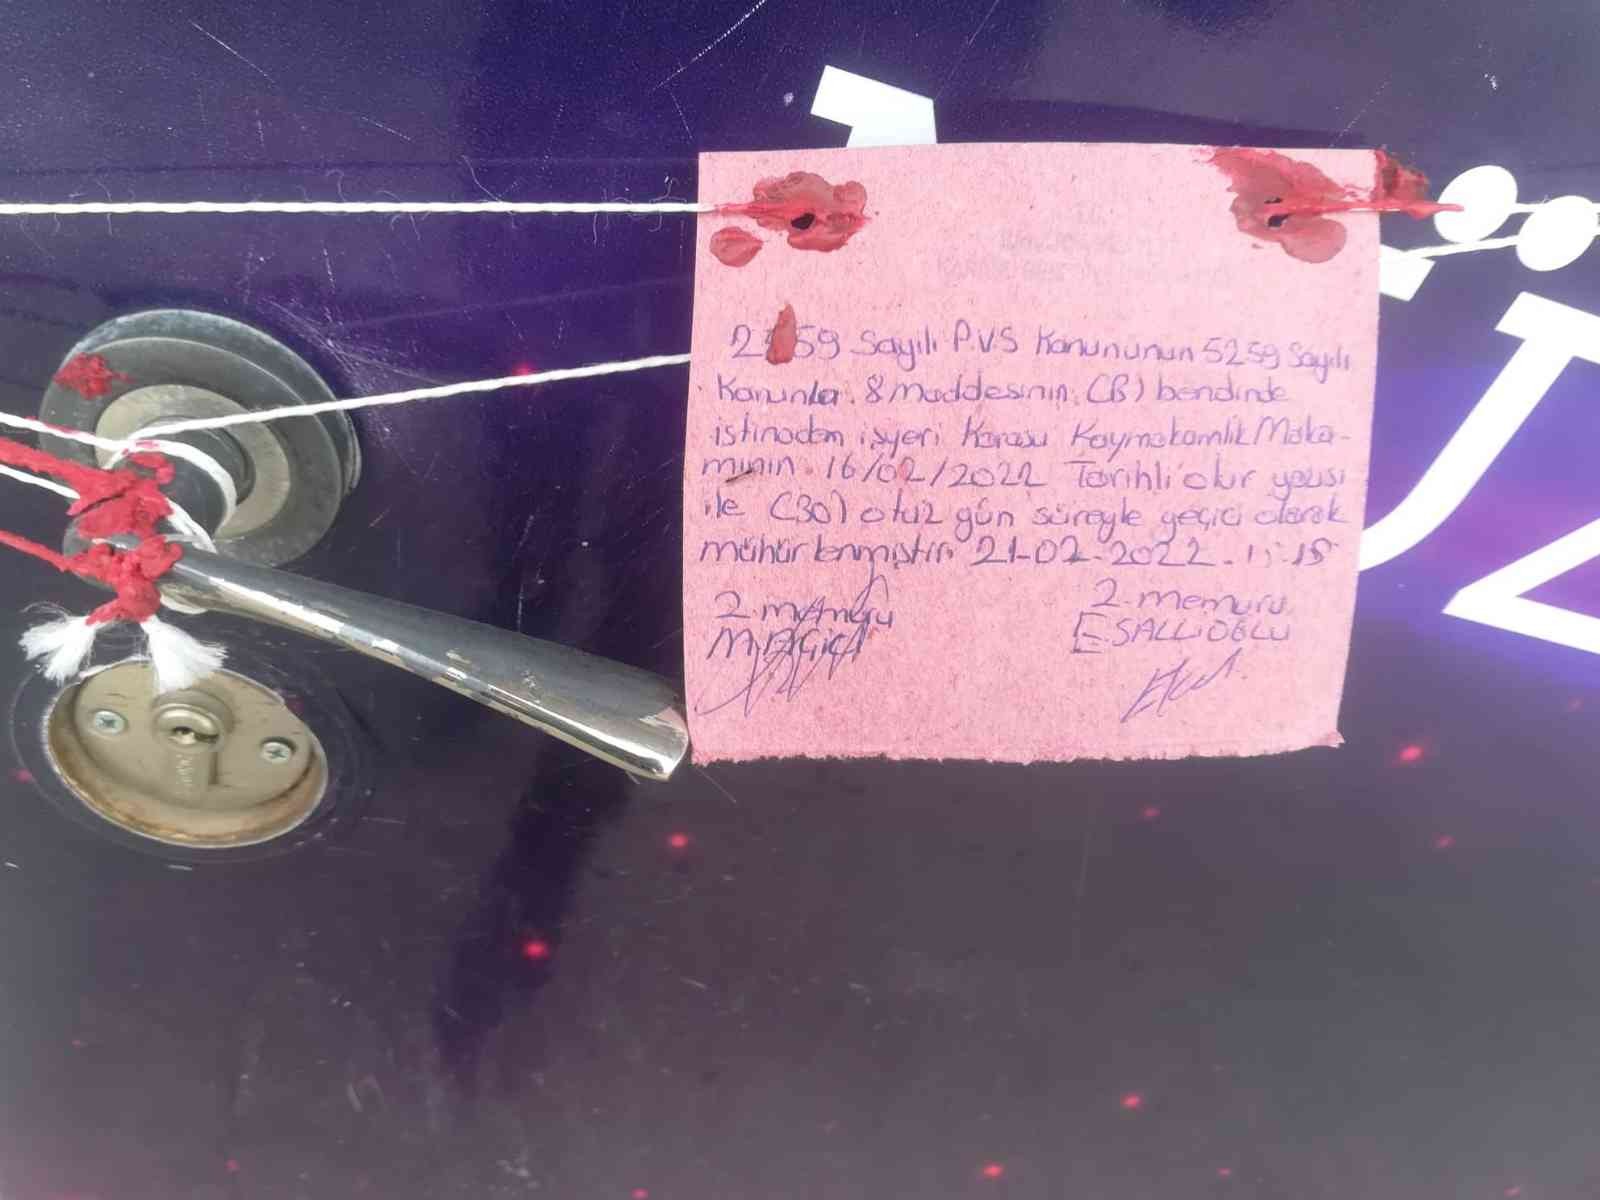 2559 Sayılı P.V.S Kanununun 5259 Sayılı
Kanunla. 8 maddesinin. (B) bendinde
istinaden işyeri Karasu Kaymakamlık Maka-
mının 16/02/2022 Tarihli olur yazısı
ile (30) otuz gün süreyle geçici olarak
mühürlenmiştir 21-02-2022
2. memuru
2. memuru
E. SALLIOĞLU